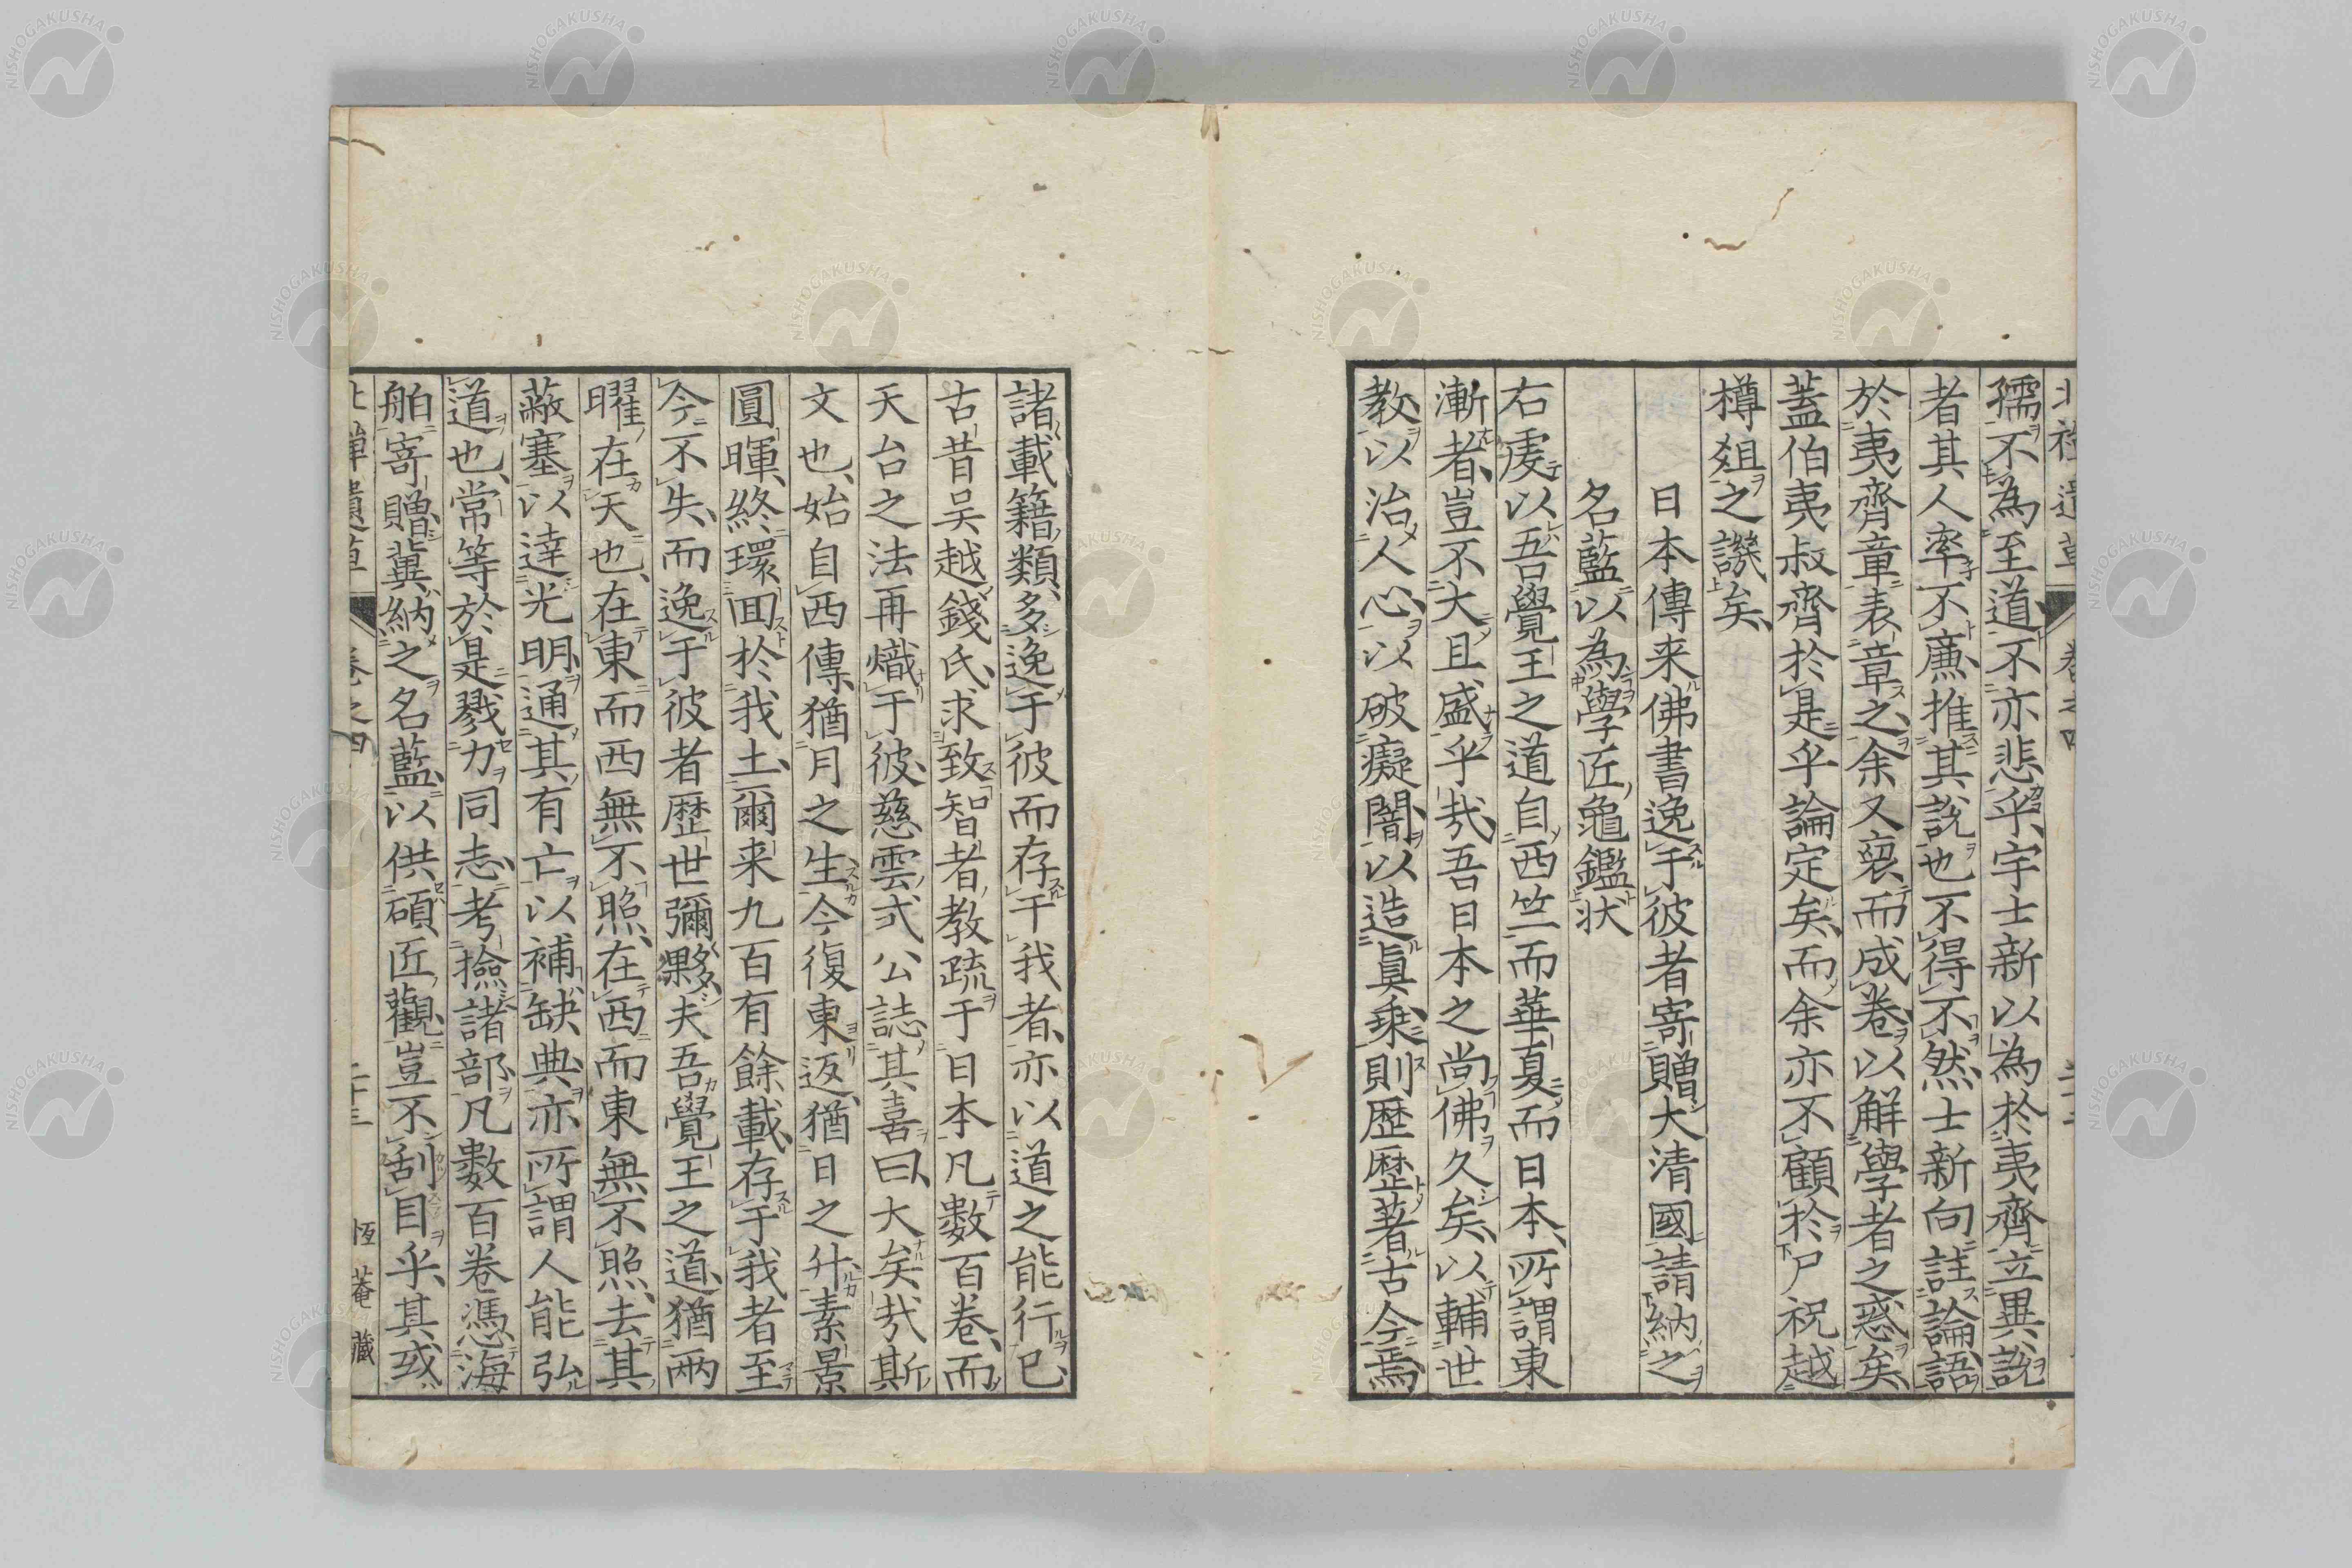 孺不為至道不亦悲乎宇士新以為於夷齊立異說
者其人率不廉推其說也不得不然士新向註論語
於夷齊章表章之余又裒而成卷以解學者之惑矣
蓋伯夷叔齊於是乎論定矣而余亦不顧於尸祝越
樽俎之譏矣
日本傳来佛書逸于彼者寄贈大清國請納之
名藍以為學匠龜鑑狀
右虔以吾覺王之道自西竺而華夏而日本所謂東
漸者豈不大且盛乎哉吾日本之尚佛久矣以輔世
教以治人心以破癡闇以造眞乗則歷歷著古今焉
諸載籍類多逸于彼而存于我者亦以道之能行已
古昔吴越錢氏求致智者教疏于日本凡數百卷而
天台之法再熾于彼慈雲式公誌其喜曰大矣哉斯
文也始自西傳猶月之生今復東返猶日之升素景
圓暉終環回於我土爾来九百有餘載存于我者至
今不失而逸于彼者歷世彌夥夫吾覺王之道猶兩
曜在天也在東而西無不照在西而東無不照去其
蔽塞以達光明通其有亡以補缺典亦所謂人能弘
道也常等於是戮力同志考撿諸部凡數百卷憑海
舶寄贈冀納之名藍以供碩匠觀豈不刮目乎其或
北禅遺草 卷之四 二十三 恆菴藏